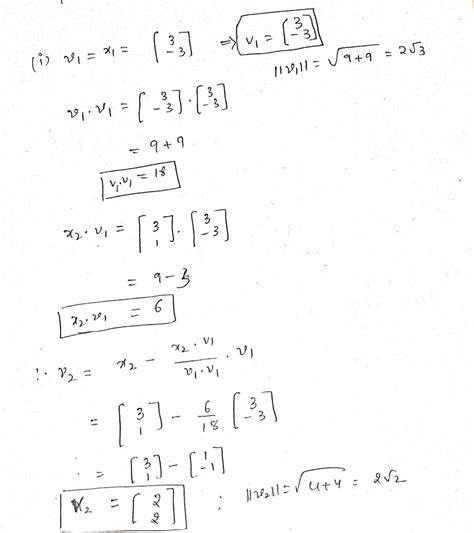 (i) v₁ = x₁ = [3 -3] ⇒ v₁ = [3 -3]
||v₁|| = √9+9 = 2√3
v₁·v₁ = [3 -3]·[3 -3]
= 9+9
v₁·v₁ = 18
x₂·v₁ = [3 1]·[3 -3]
= 9-3
x₂·v₁ = 6
∴ v₂ = x₂ - x₂·v₁/v₁·v₁ · v₁
= [3 1] - 6/18 [3 -3]
= [3 1] - [1 -1]
v₂ = [2 2] ; ||v₂|| = √4+4 = 2√2